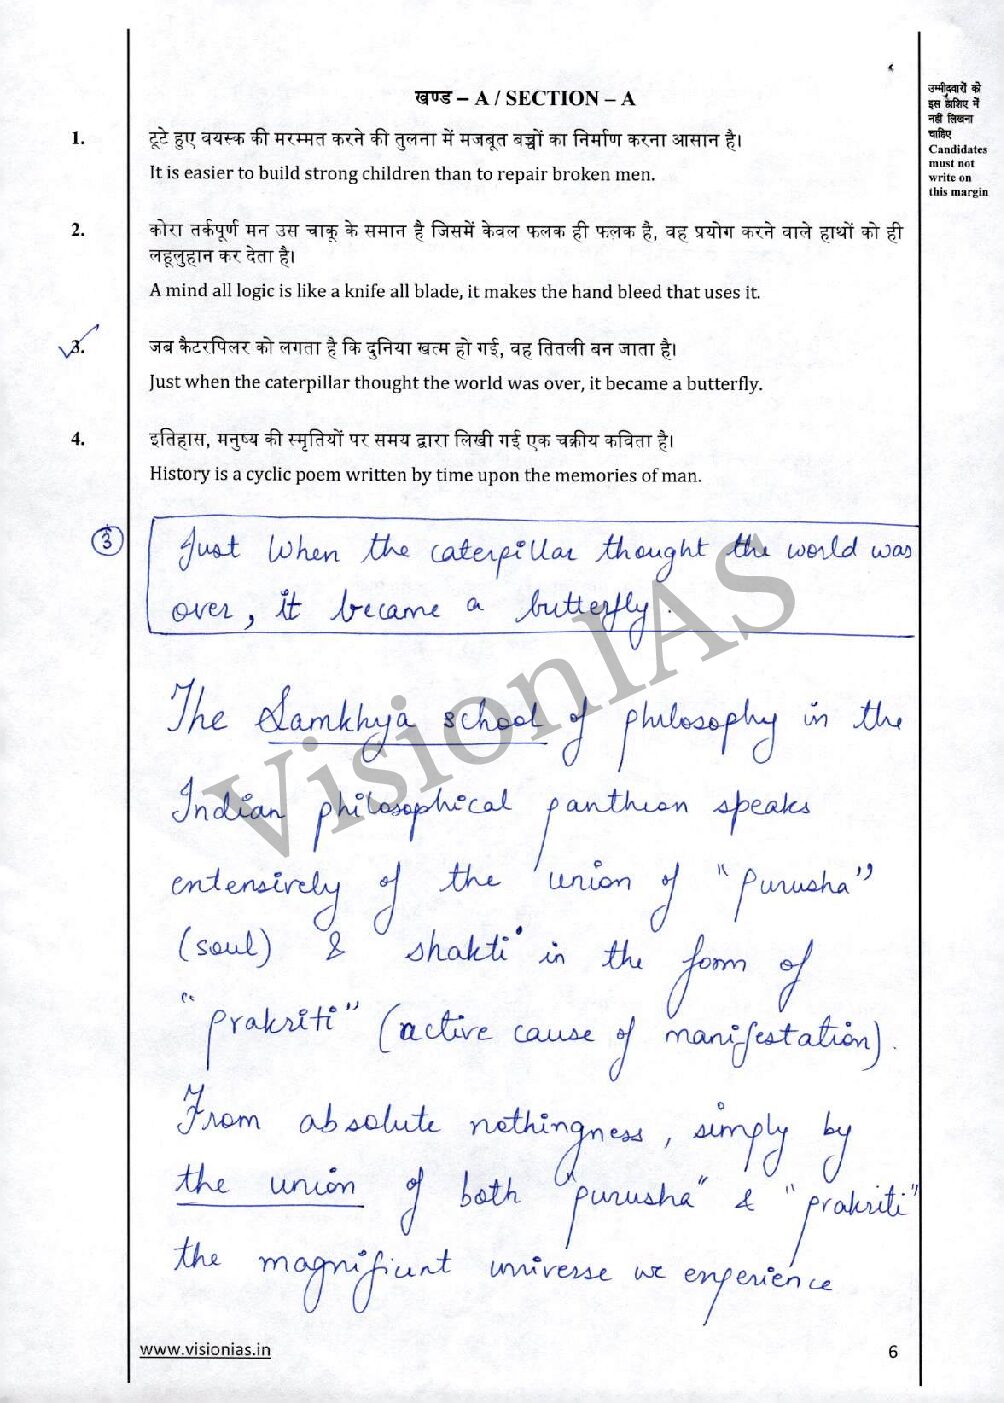 खण्ड – A / SECTION – A
उम्मीदवारों को
इस हाशिए में
नहीं लिखना
चाहिए
Candidates
must not
write on
this margin
1. टूटे हुए वयस्क की मरम्मत करने की तुलना में मजबूत बच्चों का निर्माण करना आसान है।
It is easier to build strong children than to repair broken men.
2. कोरा तर्कपूर्ण मन उस चाकू के समान है जिसमें केवल फलक ही फलक है, वह प्रयोग करने वाले हाथों को ही
लहूलुहान कर देता है।
A mind all logic is like a knife all blade, it makes the hand bleed that uses it.
3. जब कैटरपिलर को लगता है कि दुनिया खत्म हो गई, वह तितली बन जाता है।
Just when the caterpillar thought the world was over, it became a butterfly.
4. इतिहास, मनुष्य की स्मृतियों पर समय द्वारा लिखी गई एक चक्रीय कविता है।
History is a cyclic poem written by time upon the memories of man.
3 Just When the caterpillar thought the world was
over, it became a butterfly.
The Samkhya school of philosophy in the
Indian philosophical pantheon speaks
extensively of the union of "purusha"
(soul) & shakti in the form of
"prakriti" (active cause of manifestation).
From absolute nothingness, simply by
the union of both "purusha" & "prakriti"
the magnificent universe we experience
VisionIAS
www.visionias.in
6